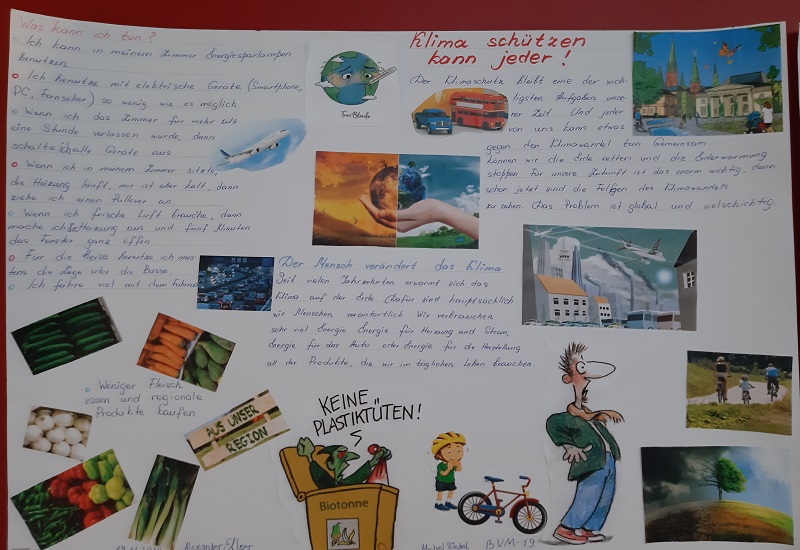 Was kann ich tun?
Ich kann in meinem Zimmer Energiesparlampen
benutzen.
Ich benutze mit elektrische Geräte (Smartphone,
PC, Fernseher) so wenig wie es möglich.
Wenn ich das Zimmer für mehr als
eine Stunde verlassen wurde, dann
schalte ich alle Geräte aus.
Wenn ich in meinem Zimmer sitze,
die Heizung läuft. mir ist aber kalt, dann
ziehe ich einen Pullover an.
Wenn ich frische Luft brauche, dann
mache ich Heizung aus und fünf Minuten
das Fenster ganz offen.
Für die Reise benutze ich meis-
tens die Züge oder die Busse.
Ich fahre viel mit dem Fahrrad
Weniger Fleisch
essen und regionale
Produkte kaufen
AUS UNSER
REGION
Klima schützen
kann jeder!
Der Klimaschutz bleibt eine der wich-
tigsten Aufgaben unse-
rer Zeit. Und jeder
von uns kann etwas
gegen den Klimawandel tun Gemeinsam
können wir die Erde retten und die Erderwärmung
stoppen. Für unsere Zukunft ist das enorm wichtig, denn
schon jetzt sind die Folgen des Klimawandels
zu sehen. Das Problem ist global und vielschichtig
Der Mensch verändert das Klima
Seit vielen Jahrzehnten erwärmt sich das
Klima auf der Erde. Dafür sind hauptsächlich
wir Menschen verantwortlich. Wir verbrauchen
sehr viel Energie Energie für Heizung und Strom,
Energie für das Auto oder Energie für die Herstellung
all der Produkte, die wir im täglichen Leben brauchen.
KEINE
PLASTIKTÜTEN!
Biotonne
Alexander
BVM-19